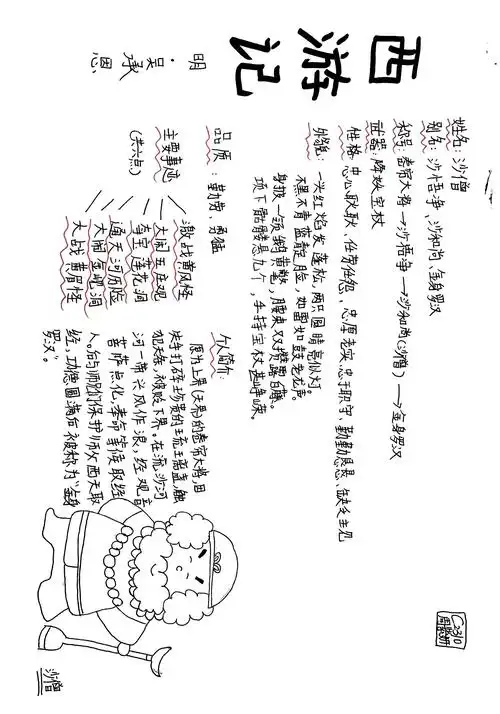 西游记
明·吴承恩
姓名:沙僧
别名:沙悟净、沙和尚、金身罗汉
称号:卷帘大将→沙悟净→沙和尚(沙僧)→金身罗汉
武器:降妖宝杖
性格:忠心耿耿、任劳任怨、忠厚老实、忠于职守、勤勤恳恳、缺乏主见
外貌:一头红焰发蓬松,两只圆睛亮似灯。
不黑不青蓝靛脸,如雷如鼓老龙声。
身披一领鹅黄氅,腰束双攒露白藤。
项下骷髅悬九个,手持宝杖甚峥嵘。
品质:勤劳 勇猛
主要事迹
(共六点)
激战黄风怪
大闹五庄观
夺宝莲花洞
通天河历险
大闹金 洞
大战黄眉怪
个人简介:
原为上界(天界)的卷帘大将,因
失手打碎珍贵的玉琉璃盏,触
犯天条,被贬下界。在流沙河
河一带兴风作浪,经观音
菩萨点化,奉命等候取经
人。后与师兄们保护师父西天取
经,功德圆满后被称为"金身
罗汉"。
沙僧
C2310